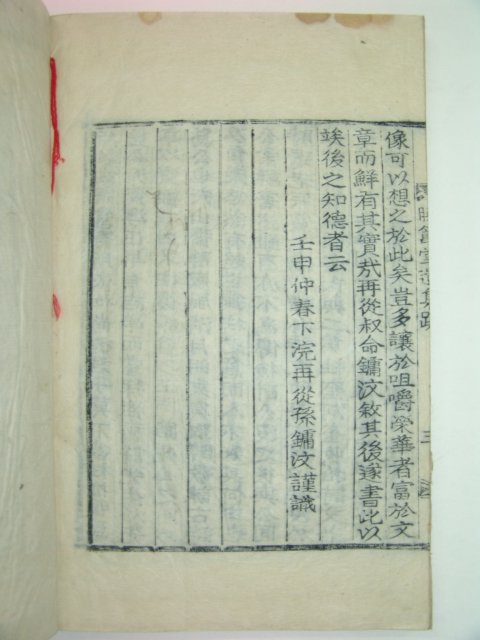 像可以想之於此矣豈多讓於咀嚼榮華者富於文
章而鮮有其實哉再從叔命鏞汶敘其後遂書此以
竢後之知德者云
壬申仲春下浣再從孫鏞汶謹識